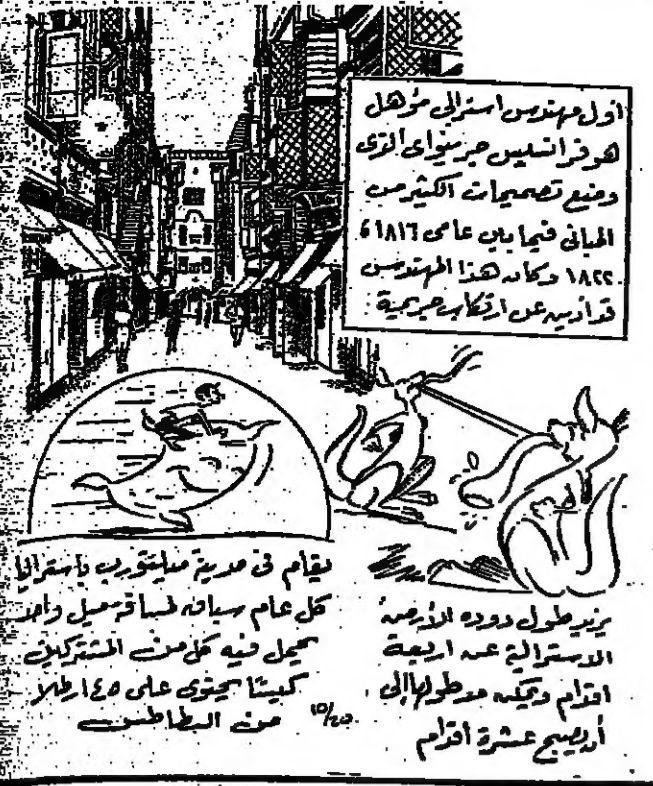 أول مهندس استرالى مؤهل
هو فرانسيس جرينواى الذى
وضع تصميمات الكثير من
المبانى فيما بين عامى ١٨١٦ ،
١٨٢٢ وكان هذا المهندس
قد أدين عن ارتكاب جريمة .
يقام فى مدينة ميلتورن باستراليا
كل عام سباق لمسافة ميل واحد
يحمل فيه كل من المشتركين
كيسًا يحتوى على ٤٥ رطلا
من البطاطس
يزيد طول دودة الأرض
الاسترالية عن اربعة
اقدام ويمكن مد طولها إلى
أن يصبح عشرة أقدام